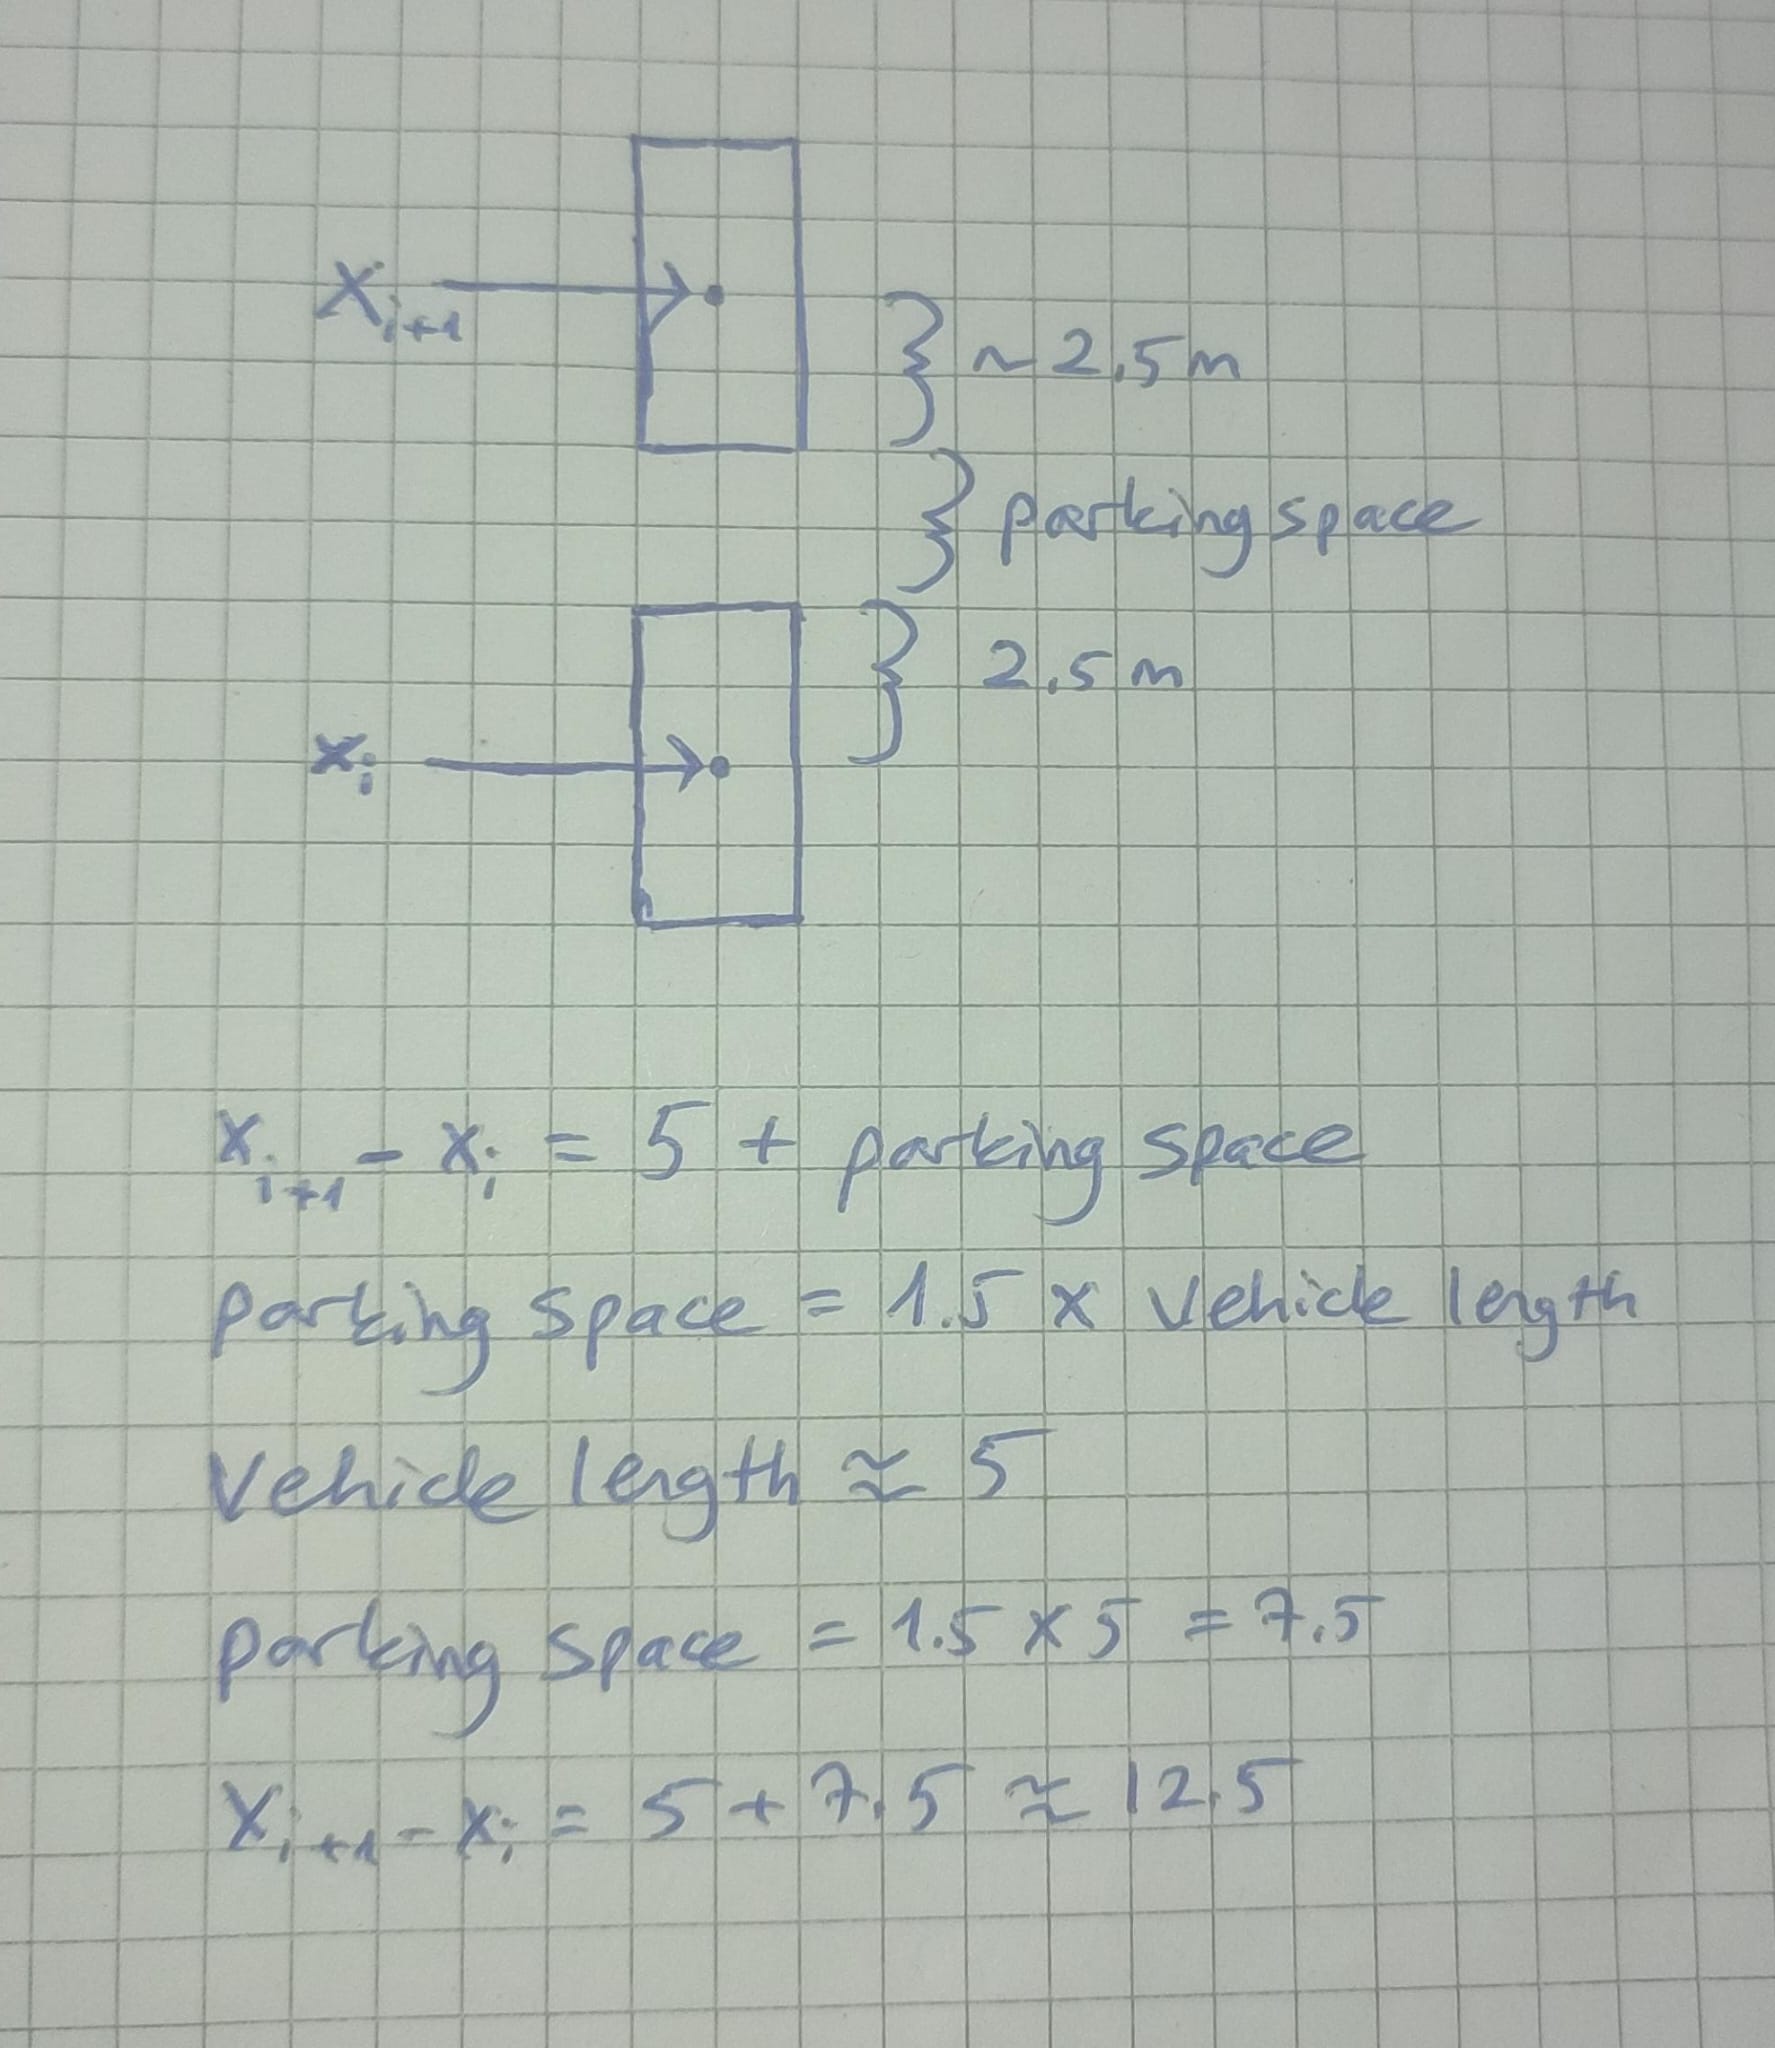 X_{i+1}
~ 2.5 m
parking space
2.5 m
x_i
x_{i+1} - x_i = 5 + parking space
parking space = 1.5 x vehicle length
vehicle length ≈ 5
parking space = 1.5 x 5 = 7.5
x_{i+1} - x_i = 5 + 7.5 ≈ 12.5